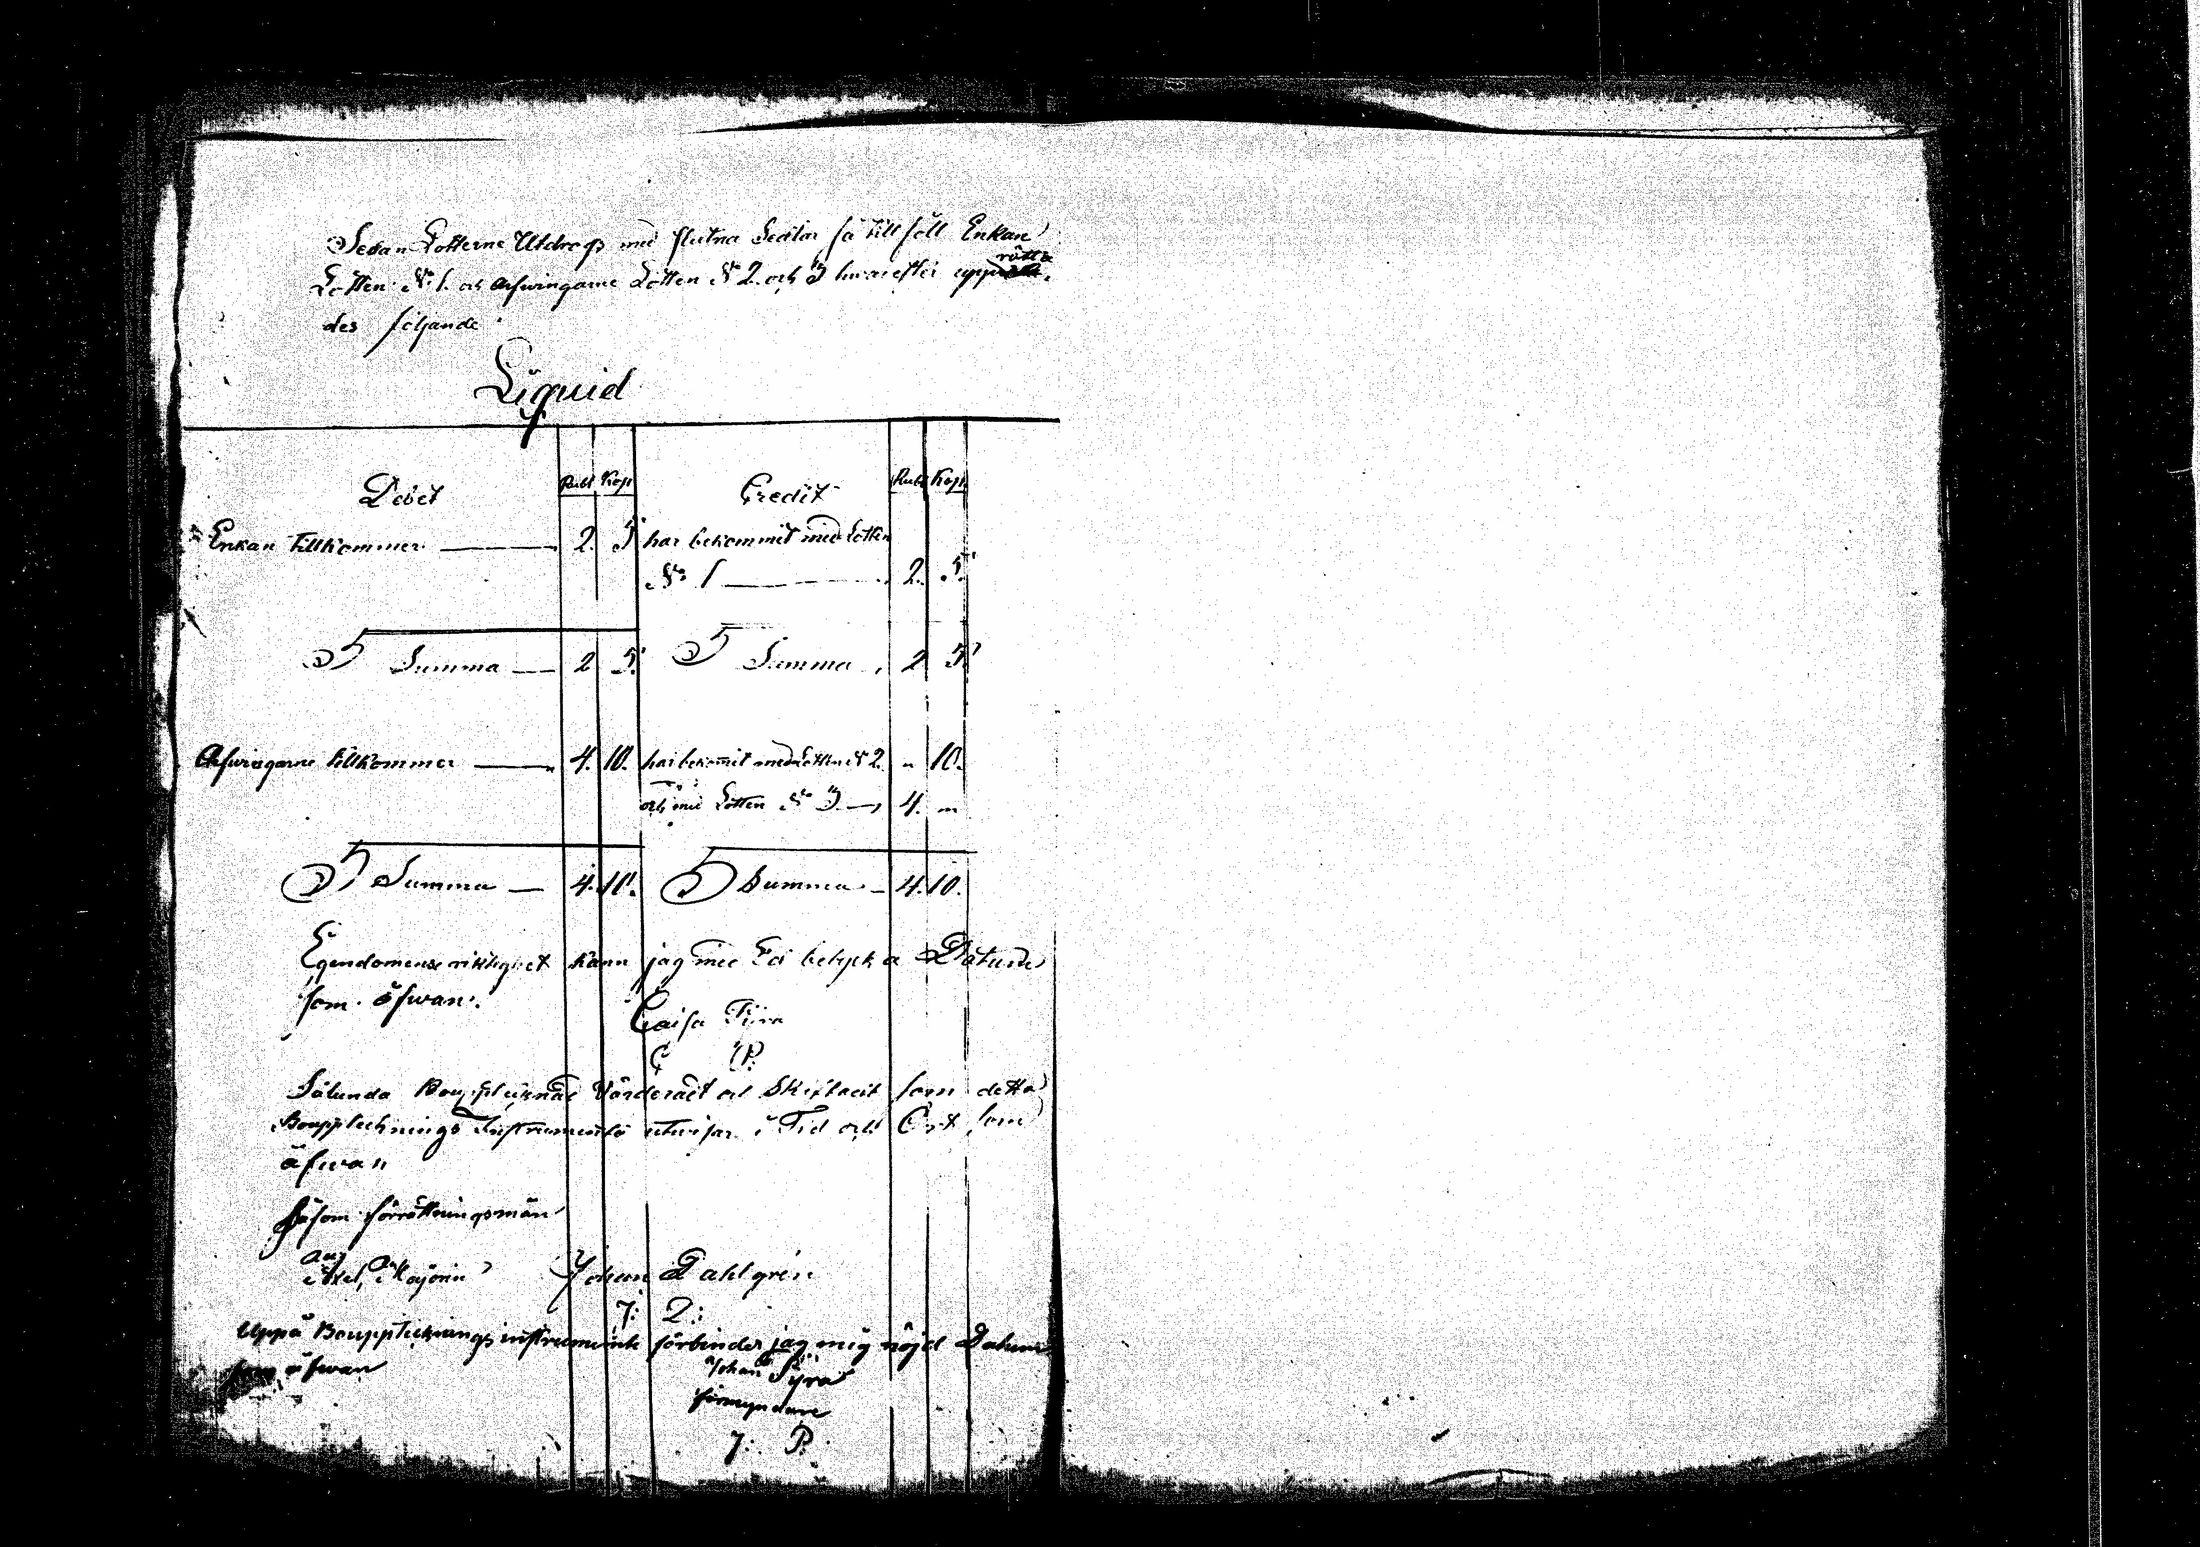 Sedan Lotterne Utdrogs med slutna Sedlar så tillföll Enkan
Lotten N:o 1. och Arfwingarne Lotten N:o 2. och 3 hwarefter upprätta
des följande
Liquid
Debet Rubl Kop Credit Rubl Kop
Enkan tillkommer 2. 5 har bekommit med Lotten
N:o 1 2. 5.
Summa 2 5. Summa 2 5
Arfwingarne tillkommer 4. 10. har bekomit med Lotten N:o 2. " 10.
och med Lotten N:o 3 4. "
Summa 4. 10. Summa 4. 10.
Egendomens riktighet kann jag med Ed betyka Datum
som åfwan.
Caisa Tyra
C P.
Sålunda Boupptecknat Värderadt och Skiftadt som detta
Boupptecknings Instrumente utwisar i Tid och Ort som
åfwan
Såsom förrättningsmän
Axel Majorin Johan Dahlgrén
Uppå Bouppteknings instrument förbinder jag mig nöjd Datum
som åfwan
Johan Tyra
förmyndare
J: P.